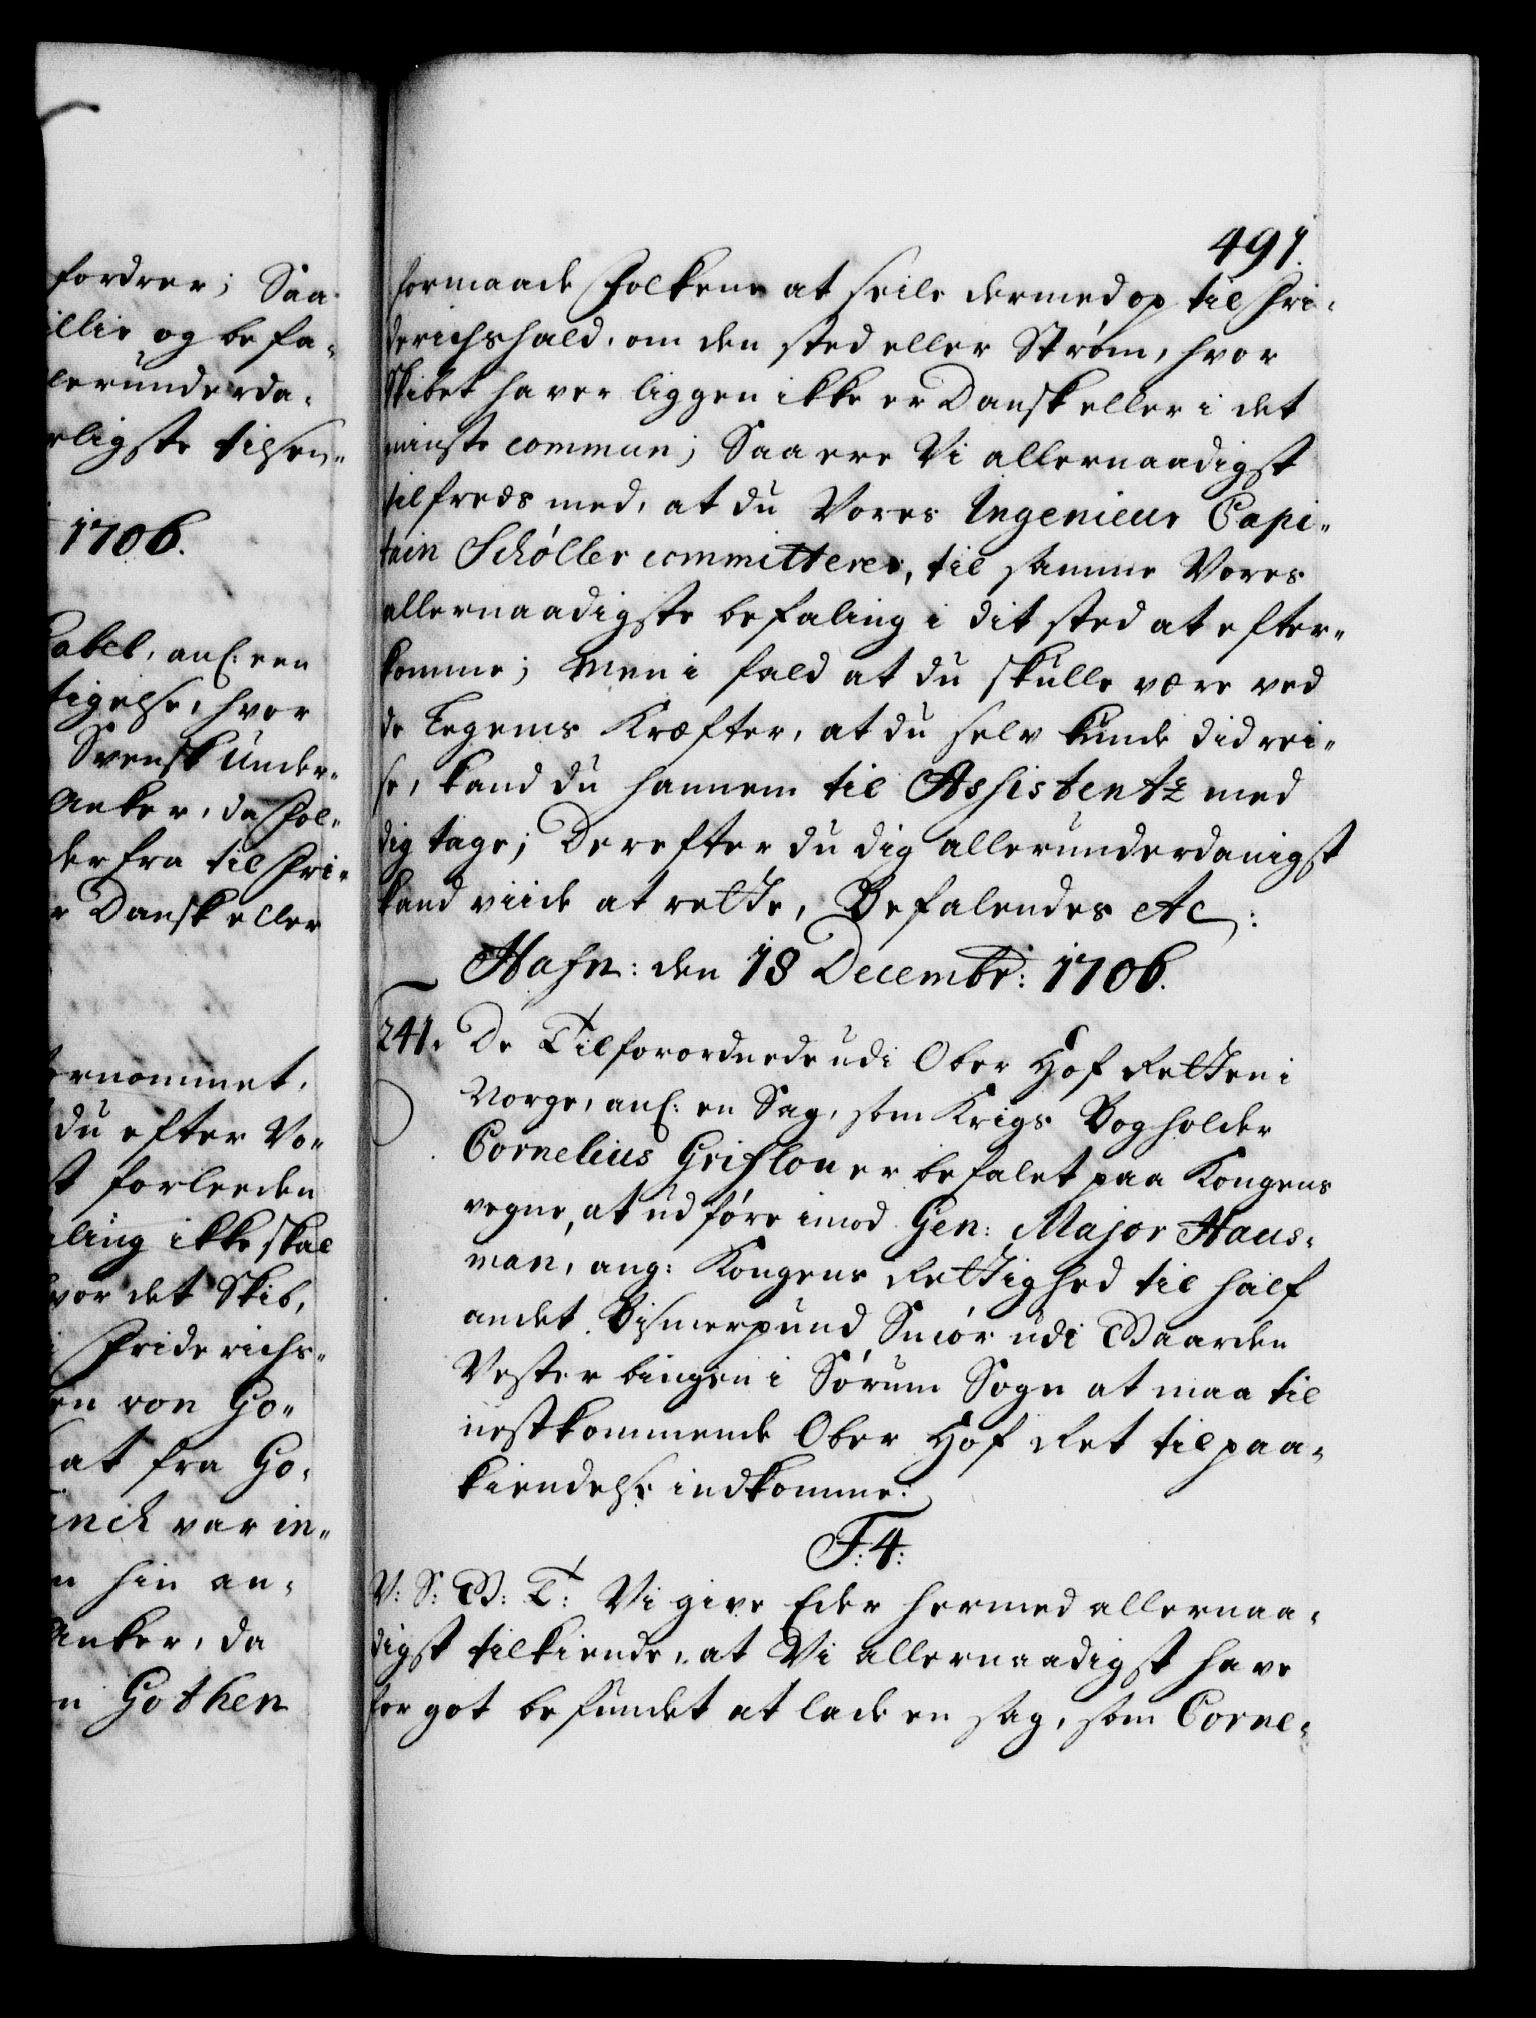 fordrer; Saa
illie og befa-
lerunderda-
rligste tilsen-
1706.
Gabel, anl: een
tigelse, hvor
Svensk Under-
Anker, da fol-
der fra til Fri-
r Dansk eller
ernommet,
du efter Vo-
st forleeden
aling ikke skal
hvor det Skib,
i Friderichs-
en von Go-
at fra Go-
inck var in-
n hin an-
Anker, da
n Gothen
491.
formaade Folkene at seile dermed op til Fri-
derichshald, om den sted eller Strøm, hvor
Skibet haver liggen ikke er Dansk eller i det
minste commun; Saa ere Vi allernaadigst
tilfreds med, at du Vores Ingenieur Capi-
tain Schøller committerer, til samme Vores
allernaadigste befaling i dit sted at efter-
komme; Men i fald at du skulle være ved
de Legems Kræfter, at du selv kunde did rei-
se, kand du hannem til Assistentz med
dig tage; Derefter du dig allerunderdanigst
kand viide at rette, Befalendes etc:
Hafn: den 18 Decembr: 1706.
241. De Tilforordnede udi Ober Hof Retten i
Norge, anl: en Sag, som Krigs Bogholder
Cornelius Griflou er befalet paa Kongens
vegne, at udføre imod Gen: Major Haus-
man, ang: Kongens Rettighed til half
andet Bismerpund Smiør udi Gaarden
Vesterbingen i Sørum Sogn at maa til
nestkommende Ober Hof Ret til paa-
kiendelse indkomme.
F: 4:
V: S: G: T: Vi give Eder hermed allernaa-
digst tilkiende, at Vi allernaadigst have
for got befundet at lade en sag, som Corne-